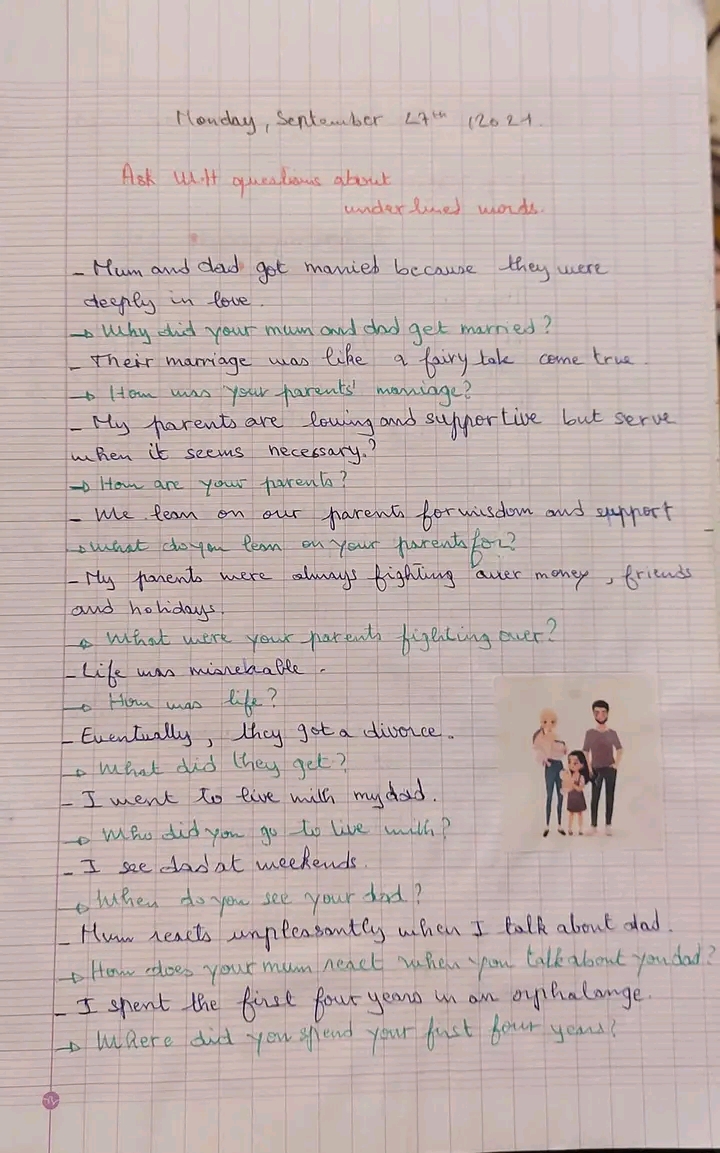 Monday, September 27th, 2021.
Ask WH questions about
underlined words.
- Mum and dad got married because they were
deeply in love.
→ Why did your mum and dad get married?
- Their marriage was like a fairy tale come true.
→ How was your parents' marriage?
- My parents are loving and supportive but serve
when it seems necessary.?
→ How are your parents?
- We lean on our parents for wisdom and support
→ What do you lean on your parents for?
- My parents were always fighting over money, friends
and holidays.
→ What were your parents fighting over?
- Life was misrebable.
→ How was life?
- Eventually, they got a divorce.
→ What did they get?
- I went to live with my dad.
→ Who did you go to live with?
- I see dad at weekends.
→ When do you see your dad?
- Mum reacts unpleasantly when I talk about dad.
→ How does your mum react when you talk about you dad?
- I spent the first four years in an orphalange.
→ Where did you spend your first four years?